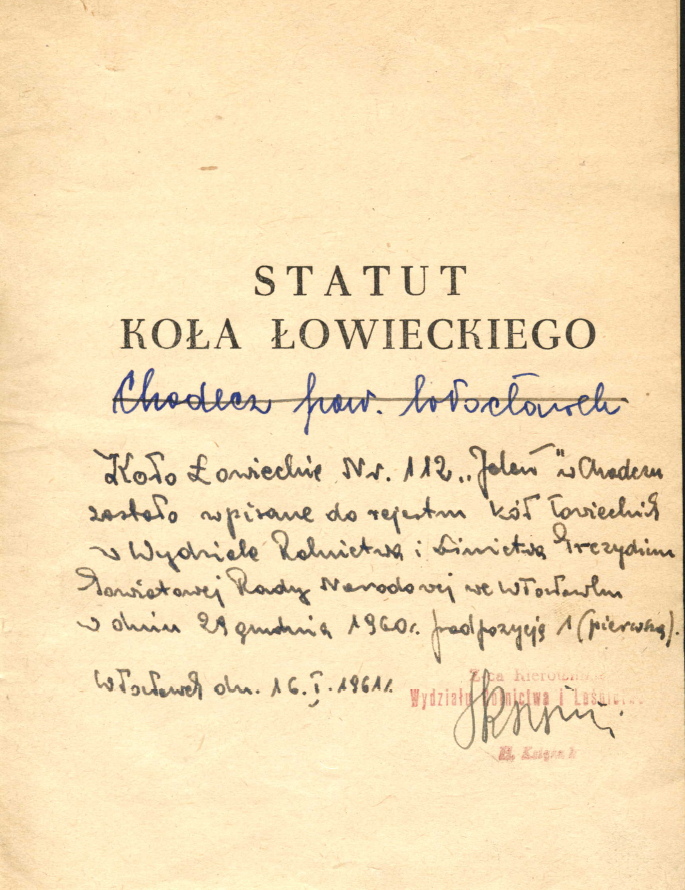 STATUT
KOŁA ŁOWIECKIEGO
Chodecz pow. Włocławek
Koło Łowieckie Nr. 112 „Jeleń" w Chodczu
zostało wpisane do rejestru kół łowieckich
w Wydziale Rolnictwa i Leśnictwa Prezydium
Powiatowej Rady Narodowej we Włocławku
w dniu 29 grudnia 1960r. pod pozycją 1 (pierwszą).
Włocławek dn. 16.I.1961r.
Z-ca Kierownika
Wydziału Rolnictwa i Leśnictwa